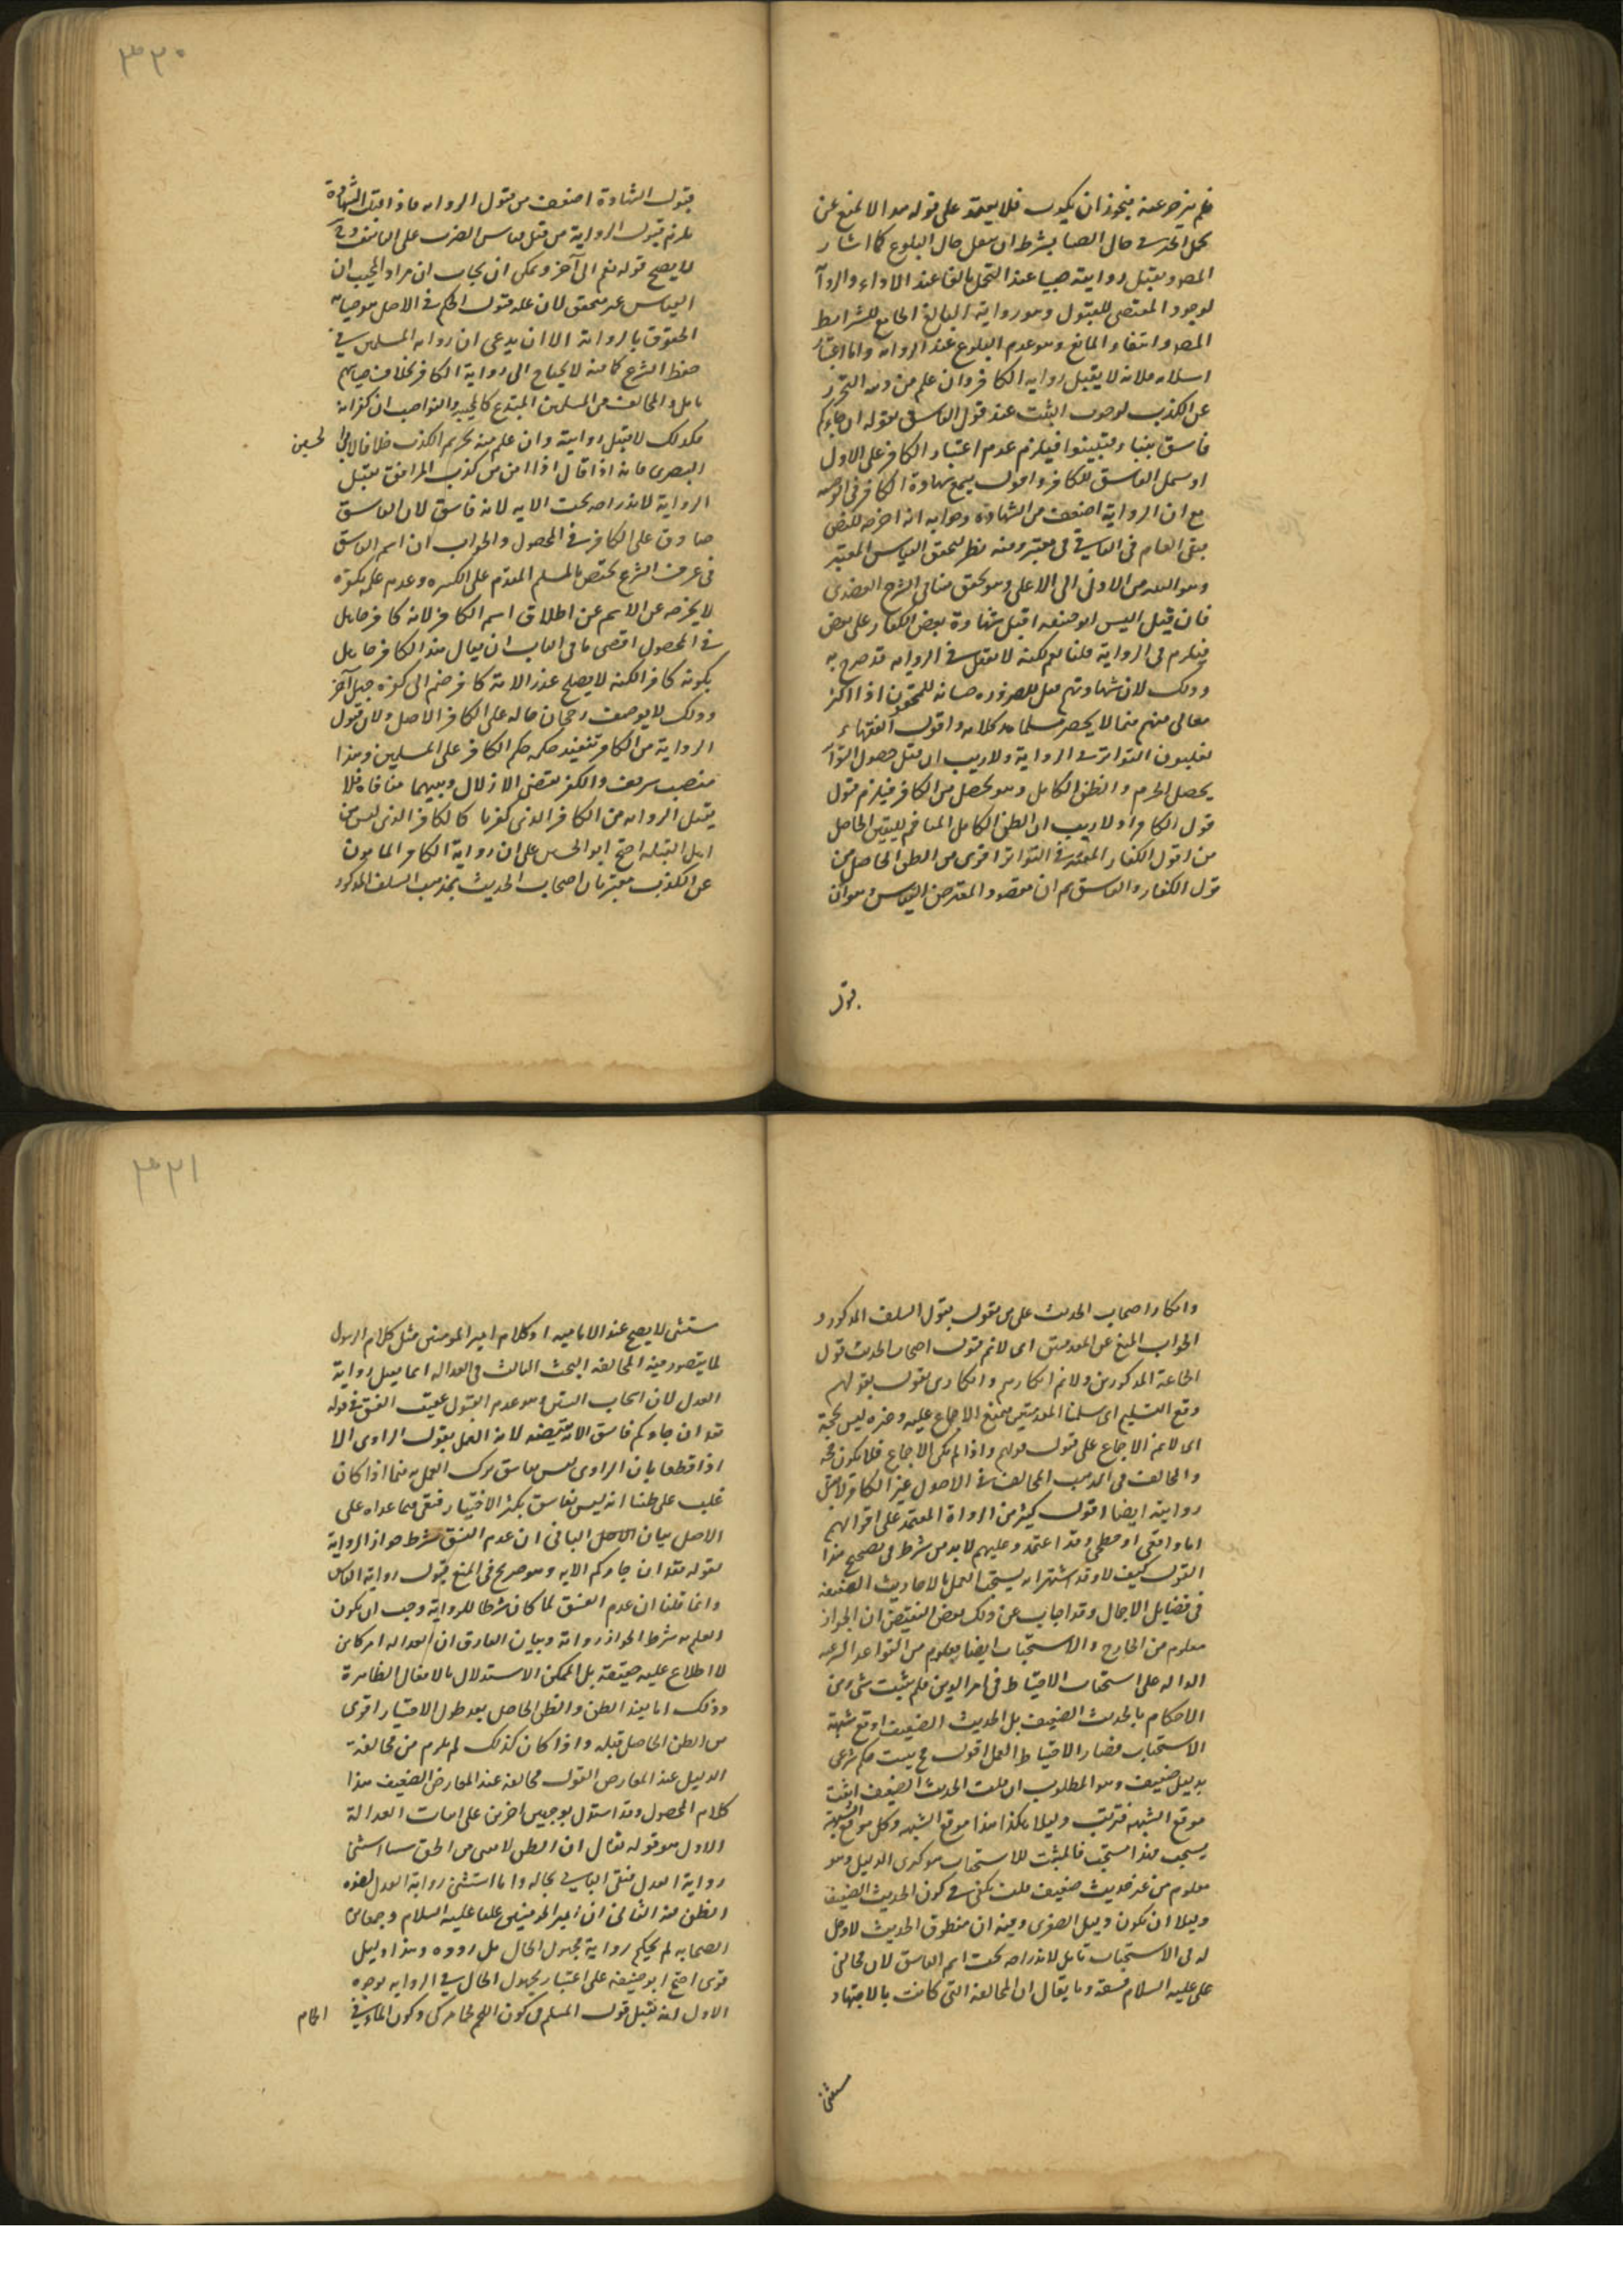 ٣٣٠
فلم يزجر عنه فيجوز ان يكون فلا يعتمد على قوله هذا لا يمنع عن
تحمل الخبر في حال الصبا بشرط ان ينقل حال البلوغ كما اشار
المصـ ويقبل روايته صبيا عند التحمل بالغا عند الاداء والروا
لوجود المقتضى للقبول وهو رواية البالغ الجامع للشرائط
المصـ وانتفاء المانع وهو عدم البلوغ عند الرواية واما اعتبار
اسلامه فلانه لا يقبل رواية الكافر وان علم من دينه التحرز
عن الكذب لوجوب التثبت عند قول الفاسق لقوله ان جاءكم
فاسق بنبا فتبينوا فيلزم عدم اعتبار الكافر على الاولى
او يشمل الفاسق للكافر واقول يسمع شهادة الكافر في الوصية
مع ان الرواية اضعف من الشهادة وجوابه انه اخرجه للنص
يبقى العام في الباقي معتبر وفيه نظر لتحقق القياس المعتبر
وهو التعدية من الادنى الى الاعلى وهو محقق
فان قيل اليس ابو حنيفة اقبل شهادة بعض الكفار على بعض
فيلزم في الرواية قلنا نعم لكنه لا يقبل في الرواية قد صرح به
وذلك لان شهادتهم يقبل للضرورة صيانة للحقوق اذ اكثر
معاملاتهم مما لا يحضر مسلمان كلامه واقول الفقهاء
يقبلون التواتر في الرواية ولا ريب ان قبل حصول التواتر
يحصل الجزم والظن الكامل وهو يحصل من الكافر فيلزم قبول
قول الكافر اذ لا ريب ان الظن الكامل المتاخم لليقين الحاصل
من اقول الكفار في التواتر اقوى من الظن الحاصل من
قول الكفار والفاسق ثم ان مقصود المعترض القياس وهو ان
قبول
قبول الشهادة اضعف من قبول الرواية فاذا قبلت الشهادة
يلزم قبول الرواية من قبيل قياس الضرب على التأفيف وح
لا يصح قوله نعم الى آخره ويمكن ان يجاب ان مراد المجيب ان
القياس غير متحقق لان علة قبول الحكم في الاصل هو صيانة
الحقوق بالرواية الا ان يدعى ان رواية المسلمين في
حفظ الشرع كافية لا يحتاج الى رواية الكافر بخلاف صيانتهم
تامل والمخالف من المسلمين المبتدع كالمجسمة والنواصب ان كفرناه
فكذلك لا يقبل روايته وان علم منه تحريم الكذب خلافا لابي الحسين
البصري فانه اذا قال اذا امن من كذب المرافق يقبل
الرواية لاندراجه تحت الاية لانه فاسق لان الفاسق
صادق على الكافر في المحصول والجواب ان اسم الفاسق
في عرف الشرع مختص بالمسلم المقدم على الكبيرة وعدم علمه بكفره
لا يخرجه عن الاسم عن اطلاق اسم الكافر لانه كافر جاهل
في المحصول اقصى ما في الباب ان يقال هذا الكافر جاهل
بكونه كافرا لكنه لا يصلح عذرا لانه كافر ضم الى كفره جهلا آخر
وذلك لا يوصف رجحان حاله على الكافر الاصلي ولان قبول
الرواية من الكافر تنفيذ حكمه حكم الكافر على المسلمين وهذا
منصب شريف والكفر يقتضي الاذلال وبينهما منافاة فلا
يقبل الرواية من الكافر الذي كفرنا كالكافر الذي ليس من
اهل القبلة احتج ابو الحسين على ان رواية الكافر المأمون
عن الكذب معتبر بان اصحاب الحديث بمذهب السلف المذكور
٣٣١
وانكار اصحاب الحديث على من يقول بقول السلف المذكور و
الجواب المنع عن المقدمتين اى لا نم قبول اصحاب الحديث قول
الجماعة المذكورين ولا نم انكارهم وانكار من يقول بقولهم
ومع التسليم اى سلمنا المقدمتين يمنع الاجماع عليه وغيره ليس بحجة
اى لا نم الاجماع على قبول قولهم واذا لم يكن الاجماع فلا يكون حجة
والمخالف في المذهب المخالف في الاصول غير الكافر لا يقبل
روايته ايضا اقول كثير من الرواة المعتمد على اقوالهم
اما واقفي او فطحي وقد اعتمدوا عليهم لا بد من شرط في تصحيح هذا
القول كيف لا وقد اشتهر انه يستحب العمل بالاحاديث الضعيفة
في فضايل الاعمال وقد اجاب عن ذلك بعض المفيضين ان الجواز
معلوم من الخارج والاستحباب ايضا معلوم من القواعد الشرعية
الدالة على استحباب الاحتياط في امر الدين فلم يثبت شئ من
الاحكام بالحديث الضعيف بل الحديث الضعيف اوقع شبهة
الاستحباب فصار الاحتياط العمل اقول ح يثبت حكم شرعى
بدليل ضعيف وهو المطلوب ان قلت الحديث الضعيف اثبت
موقع الشبهة فترتب دليلا هكذا هذا موقع الشبهة وكل موقع الشبهة
يستحب هذا مستحب فالمثبت للاستحباب هو كبرى الدليل وهو
معلوم من غير حديث ضعيف قلت يكفي في كون الحديث الضعيف
دليلا ان يكون دليل الصغرى وفيه ان منطوق الحديث لا دخل
له في الاستحباب تامل لاندراجه تحت اسم الفاسق لان مخالفي
على عليه السلام فسقة وما يقال ان المخالفة التي كانت بالاجتهاد
مستثنى
مستثنى لا يصح عند الامامية اذ كلام امير المؤمنين مثل كلام الرسول
لا يتصور فيه المخالفة البحث الثالث في العدالة انما يقبل رواية
العدل لان ايجاب التبين وهو عدم القبول عقيب الفسق في قوله
تعـ ان جاءكم فاسق الاية يقتضيه لانه العمل بقول الراوى الا
اذا قطعنا بان الراوى ليس بفاسق ترك العمل به فيما اذا كان
غلب على ظننا انه ليس بفاسق بكثرة الاختبار فبقى فيما عداه على
الاصل بيان الاصل الباقي ان عدم الفسق شرط جواز الرواية
لقوله تعـ ان جاءكم الاية وهو صريح في المنع بقبول رواية الفاسق
وانما قلنا ان عدم الفسق لما كان شرطا للرواية وجب ان يكون
العلم به شرط الجواز روايته وبيان الفارق ان العدالة امر كامن
لا اطلاع عليه حقيقة بل الممكن الاستدلال بالافعال الظاهرة
وذلك انما يفيد الظن والظن الحاصل بعد طول الاختبار اقوى
من الظن الحاصل قبله واذا كان كذلك لم يلزم من مخالفة
الدليل عند المعارض القوي مخالفة عند المعارض الضعيف هذا
كلام المحصول وقد استدل بوجهين اخرين على اثبات العدالة
الاول هو قوله تعالى ان الظن لا يغني من الحق شيئا استثنى
رواية العدل فبقى الباقي بحاله وانما استثنى رواية العدل لقوة
الظن فيه الثاني ان امير المؤمنين عليا عليه السلام وجماعة من
الصحابة لم يحكم رواية مجهول الحال بل ردوه وهذا دليل
قوى احتج ابو حنيفة على اعتبار مجهول الحال في الرواية بوجوه
الاول انه يقبل قول المسلم في كون اللحم لحم مذكى وكون الماء في الحمام